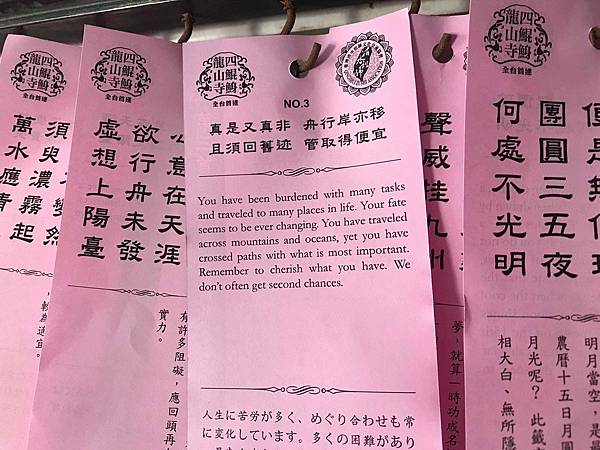 四鯤鯓
龍山寺
全台首建
NO.3
真是又真非 舟行岸亦移
且須回舊迹 管取得便宜
You have been burdened with many tasks
and traveled to many places in life. Your fate
seems to be ever changing. You have traveled
across mountains and oceans, yet you have
crossed paths with what is most important.
Remember to cherish what you have. We
don't often get second chances.
人生に苦労が多く、めぐり合わせも常
に変化しています。多くの困難があり
四鯤鯓
龍山寺
全台首建
萬
水
應
四鯤鯓
龍山寺
全台首建
意在天涯
欲行舟未發
虛想上陽臺
有許多阻礙，應回頭再
實力。
聲威挂九州
夢，就算一時功成名
四鯤鯓
龍山寺
全台首建
團圓三五夜
何處不光明
明月當空，是最
農曆十五日月圓
月光呢？此籤
相大白、無所隱